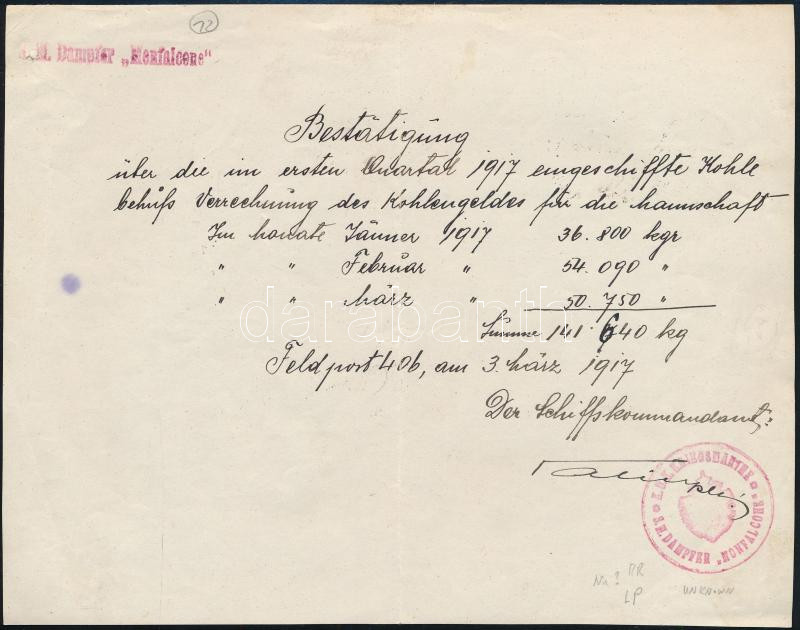 22
S.M. Dampfer „Monfalcone"
Bestätigung
über die im ersten Quartal 1917 eingeschiffte Kohle
behufs Verrechnung des Kohlengeldes für die Mannschaft
Im Monate Jänner 1917 36.800 kgr
„ „ Februar „ 54.090 „
„ „ März „ 50.750 „
Summe 141.640 kg
darabanth
Feldpost 406, am 3. März 1917
Der Schiffskommandant:
K.U.K. KRIEGSMARINE
S.M. DAMPFER „MONFALCONE"
Na? RR
LP UNKNOWN